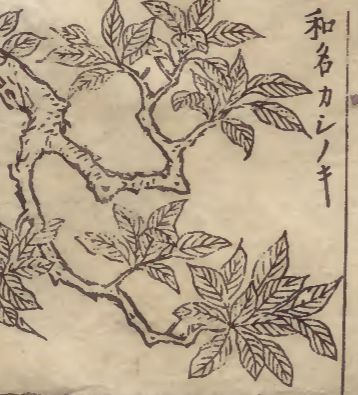 和名カシノキ